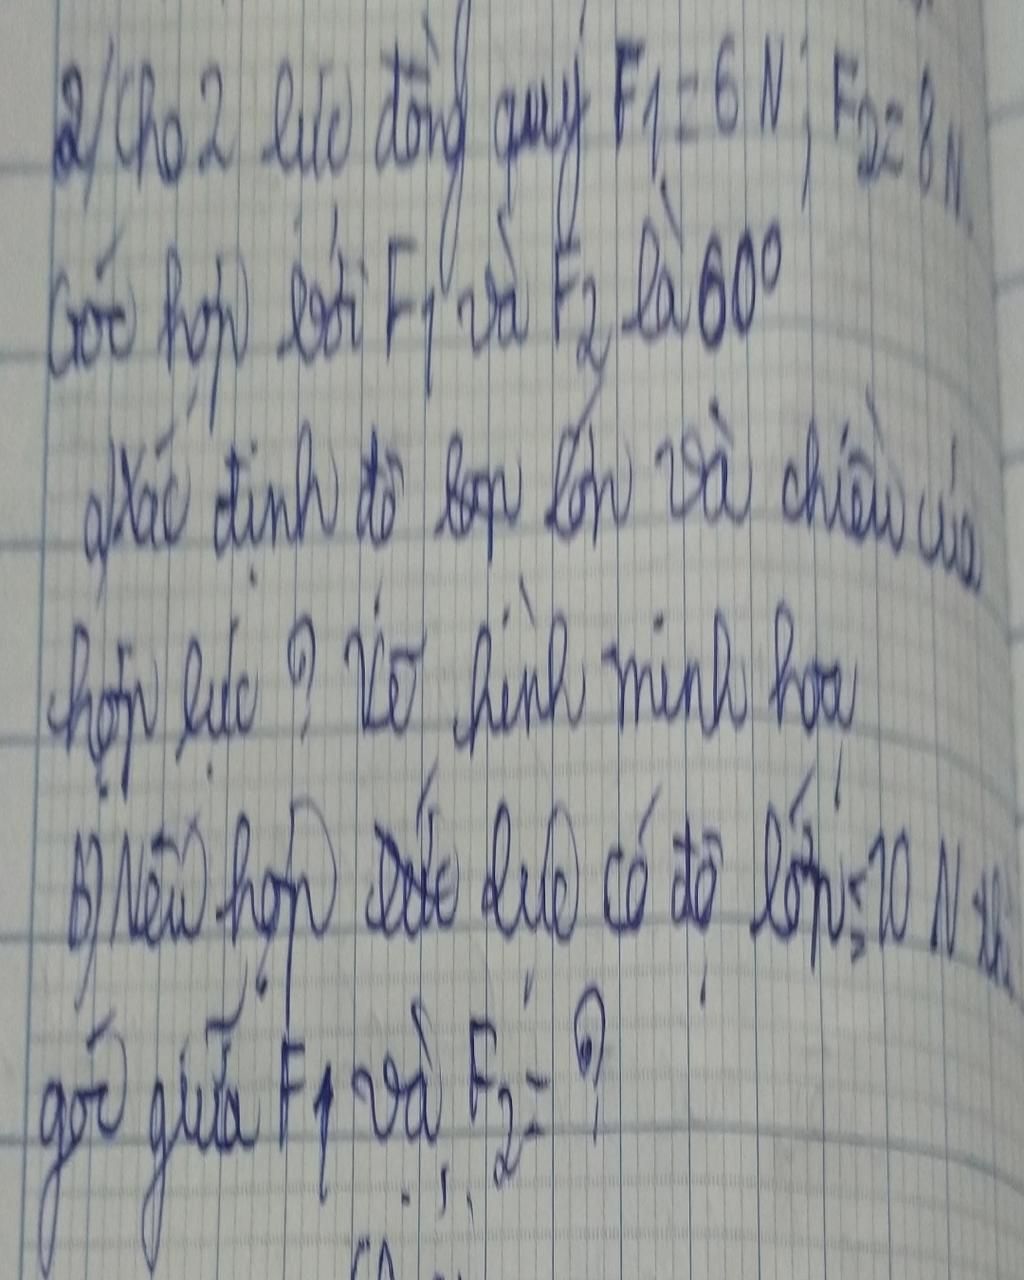 2/ Cho 2 lực đồng quy F1 = 6 N; F2 = 8 N.
Góc hợp bởi F1 và F2 là 60°
a) Xác định độ lớn và chiều của
hợp lực? Vẽ hình minh hoạ
b) Nếu hợp lực có độ lớn = 10 N thì
góc giữa F1 và F2 = ?